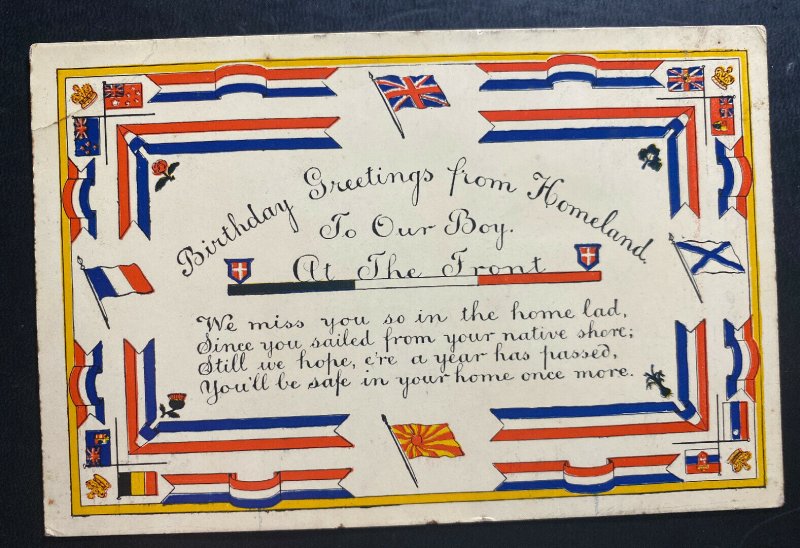 Birthday Greetings from Homeland.
To Our Boy.
At The Front
We miss you so in the home lad,
Since you sailed from your native shore;
Still we hope, e're a year has passed,
You'll be safe in your home once more.